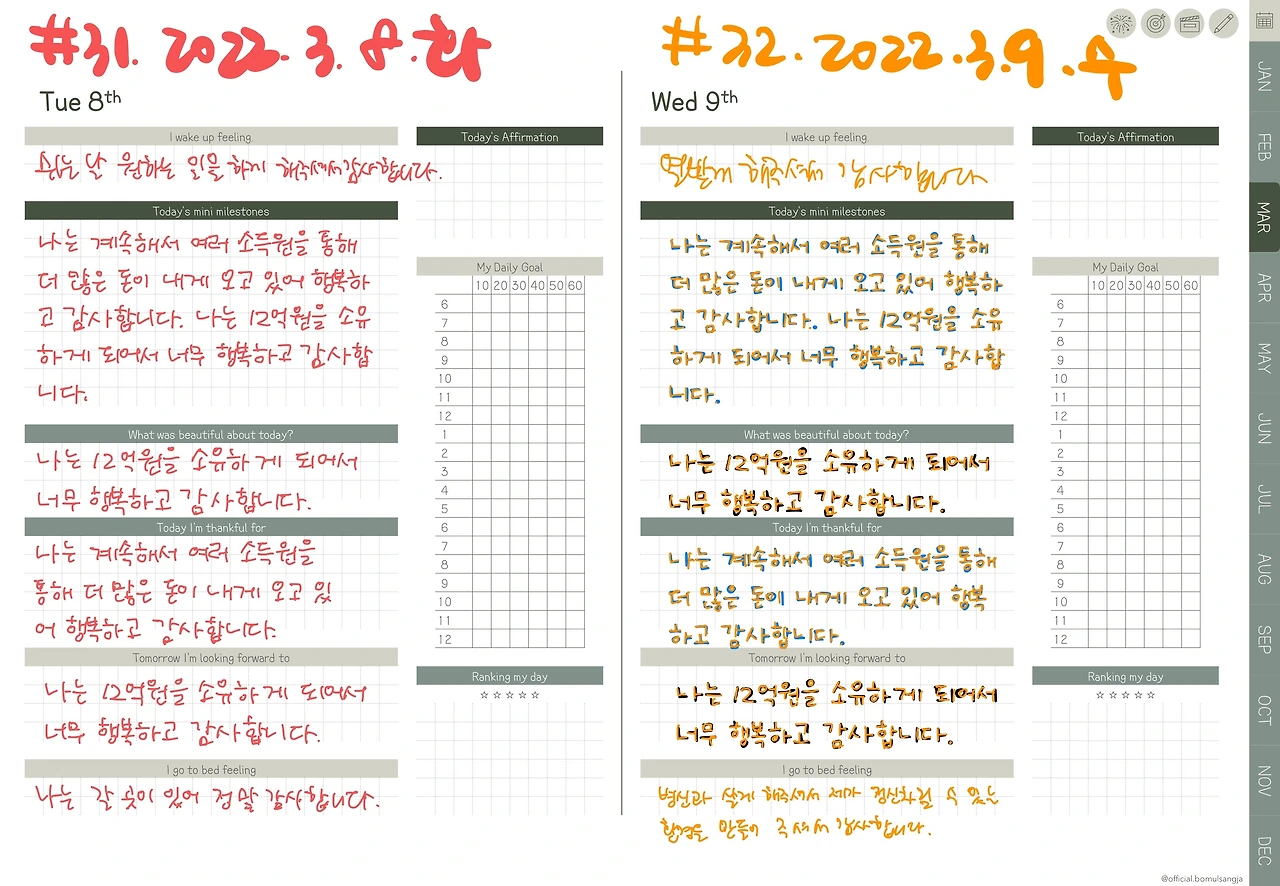 #31. 2022. 3. 8. 화
Tue 8th
I wake up feeling.
쉬는 날 원하는 일을 하게 해주셔서 감사합니다.
Today's Affirmation
Today's mini milestones
나는 계속해서 여러 소득원을 통해
더 많은 돈이 내게 오고 있어 행복하
고 감사합니다. 나는 12억원을 소유
하게 되어서 너무 행복하고 감사합
니다.
My Daily Goal
10 20 30 40 50 60
6
7
8
9
10
11
12
1
2
3
4
5
6
7
8
9
10
11
12
What was beautiful about today?
나는 12억원을 소유하게 되어서
너무 행복하고 감사합니다.
Today I'm thankful for
나는 계속해서 여러 소득원을
통해 더 많은 돈이 내게 오고 있
어 행복하고 감사합니다.
Tomorrow I'm looking forward to
나는 12억원을 소유하게 되어서
너무 행복하고 감사합니다.
Ranking my day
☆☆☆☆☆
I go to bed feeling
나는 갈 곳이 있어 정말 감사합니다.
#32. 2022. 3. 9. 수
Wed 9th
I wake up feeling.
해주셔서 감사합니다
Today's Affirmation
Today's mini milestones
나는 계속해서 여러 소득원을 통해
더 많은 돈이 내게 오고 있어 행복하
고 감사합니다. 나는 12억원을 소유
하게 되어서 너무 행복하고 감사합
니다.
My Daily Goal
10 20 30 40 50 60
6
7
8
9
10
11
12
1
2
3
4
5
6
7
8
9
10
11
12
What was beautiful about today?
나는 12억원을 소유하게 되어서
너무 행복하고 감사합니다.
Today I'm thankful for
나는 계속해서 여러 소득원을 통해
더 많은 돈이 내게 오고 있어 행복
하고 감사합니다.
Tomorrow I'm looking forward to
나는 12억원을 소유하게 되어서
너무 행복하고 감사합니다.
Ranking my day
☆☆☆☆☆
I go to bed feeling
살게 해주셔서 제가 정신차릴 수 있는
환경을 만들어 주셔서 감사합니다.
JAN
FEB
MAR
APR
MAY
JUN
JUL
AUG
SEP
OCT
NOV
DEC
@official.bomulsangja